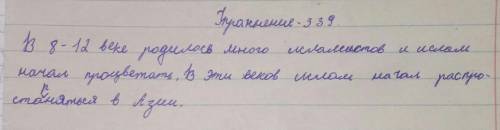 Упражнение-339.
В 8-12 веке родилось много исламистов и ислам
начал процветать. В эти веков ислам начал распро-
страняться в Азии.